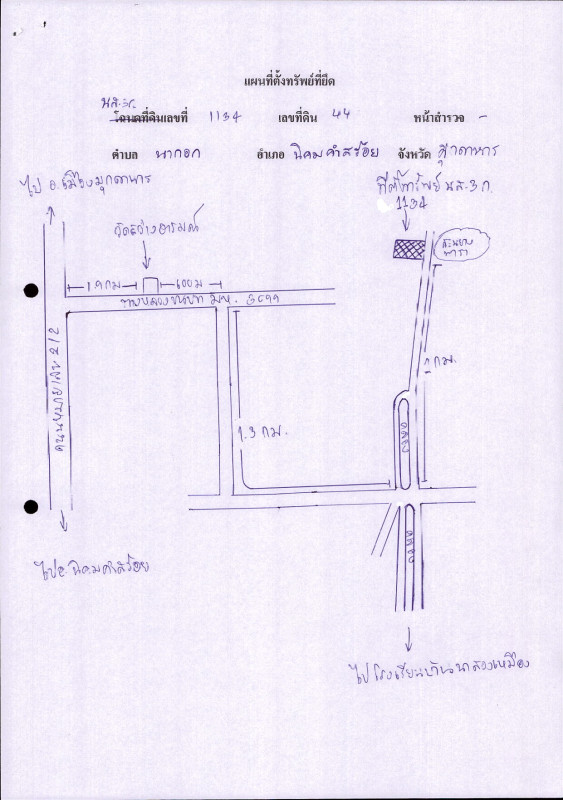 แผนที่ตั้งทรัพย์ที่ยึด
นส.3ก.
โฉนดที่ดินเลขที่ 1134 เลขที่ดิน 44 หน้าสำรวจ -
ตำบล นากอก อำเภอ นิคมคำสร้อย จังหวัด มุกดาหาร
ไป อ.เมืองมุกดาหาร
ที่ตั้งทรัพย์ นส.3ก.
1134
วัดสว่างอารมณ์
สวนยาง
พารา
1 กม
600 ม
ทางหลวงชนบท มห. 3019
ถนนหมายเลข 212
1 กม.
1.3 กม.
คลอง
คลอง
ไป อ.นิคมคำสร้อย
ไปโรงเรียนบ้านนาสองเหมือง